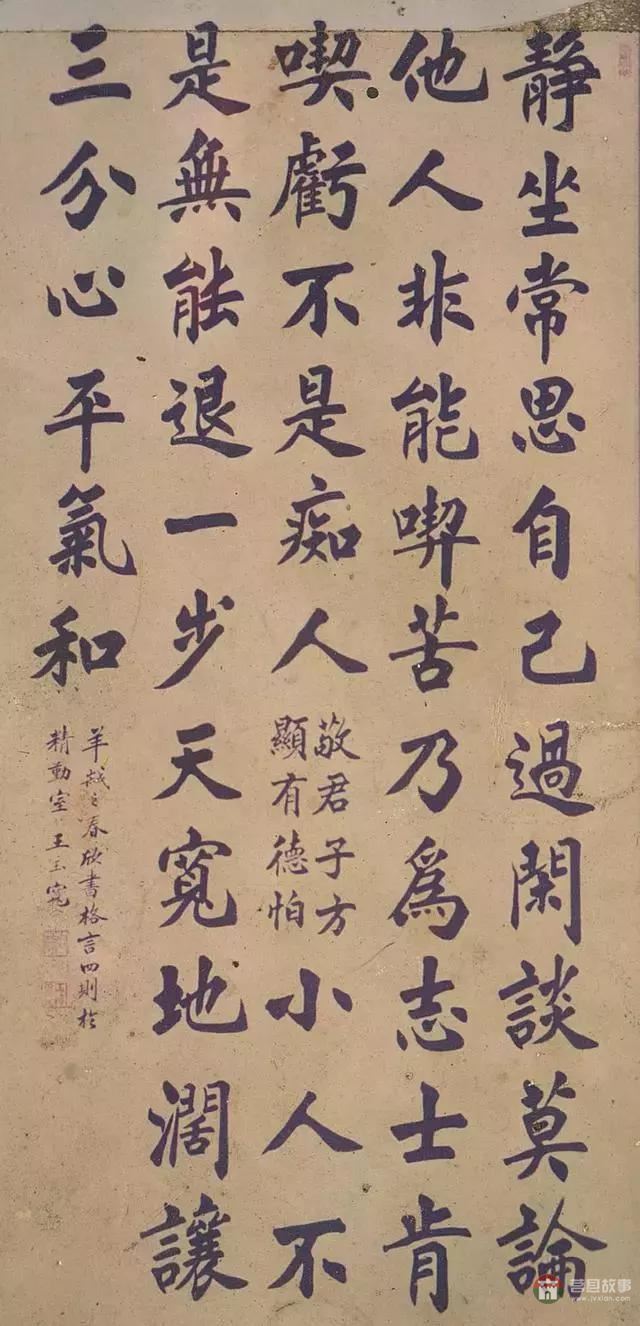 静坐常思自己過閑談莫論
他人非能喫苦乃爲志士肯
喫虧不是痴人
敬君子方
顯有德怕
小人不
是無能退一步天寬地濶讓
三分心平氣和
春欣書格言四則於
精勤室王玉
莒县故事
www.jvxian.com